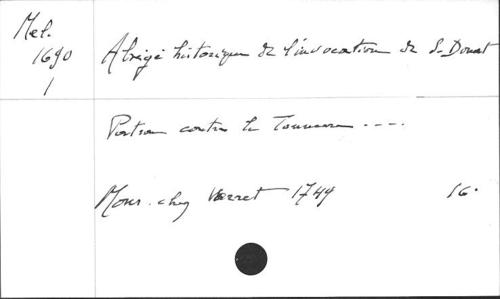 Mel.
1690
1
Abrégé historique de l'invocation de S. Donat
Patron contre le Tonnerre ----.
Mons. chez Verret 1749 16°